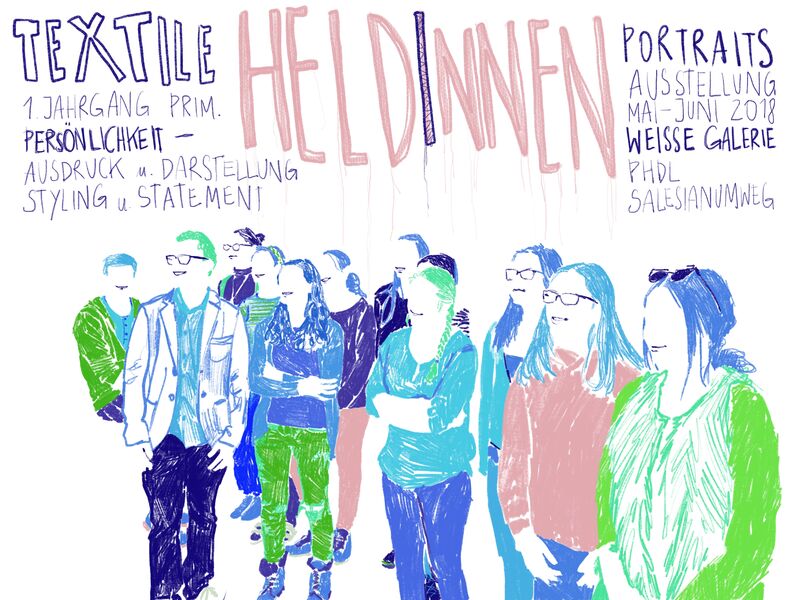 TEXTILE
HELDINNEN
1. JAHRGANG PRIM.
PERSÖNLICHKEIT –
AUSDRUCK u. DARSTELLUNG
STYLING u. STATEMENT
PORTRAITS
AUSSTELLUNG
MAI–JUNI 2018
WEISSE GALERIE
PHDL
SALESIANUMWEG